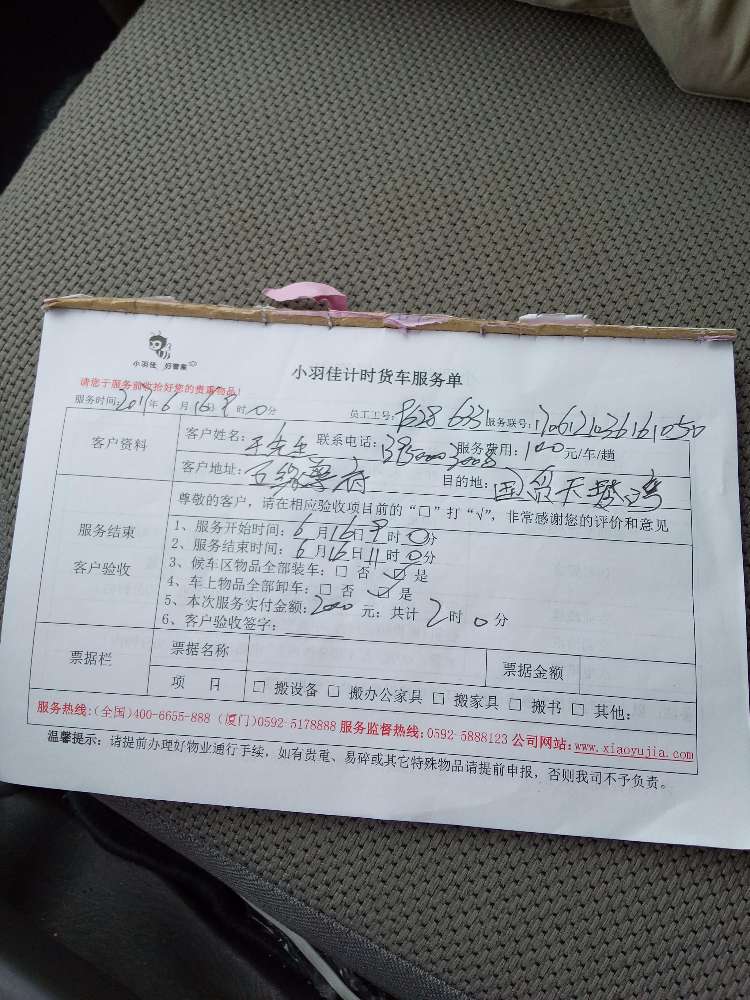 小羽佳 好管家
小羽佳计时货车服务单
请您于服务前收拾好您的贵重物品！
服务时间：2017年6月16日9时0分 员工工号： 服务联号：
客户资料
客户姓名：王先生 联系电话： 服务费用：100元/车/趟
客户地址： 目的地：
服务结束
客户验收
尊敬的客户，请在相应验收项目前的“□”打“√”，非常感谢您的评价和意见
1、服务开始时间：6月16日9时0分
2、服务结束时间：6月16日11时0分
3、候车区物品全部装车：□ 否 ☑ 是
4、车上物品全部卸车：□ 否 ☑ 是
5、本次服务实付金额：2000元；共计2时0分
6、客户验收签字：
票据栏
票据名称 票据金额
项 目 □ 搬设备 □ 搬办公家具 □ 搬家具 □ 搬书 □ 其他：
服务热线：(全国)400-6655-888 (厦门)0592-5178888 服务监督热线：0592-5888123 公司网站：www.xiaoyujia.com
温馨提示：请提前办理好物业通行手续，如有贵重、易碎或其它特殊物品请提前申报，否则我司不予负责。